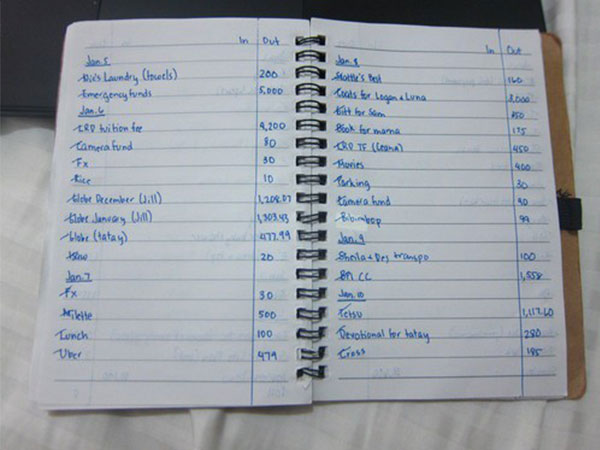 In Out
Jan. 5
Laundry (towels) 200
Emergency funds 5,000
Jan. 6
tuition fee 4,200
Camera fund 80
Fx 30
Rice 10
Globe December (Jill) 1,208.07
Globe January (Jill) 1,303.43
Globe (tatay) 477.99
20
Jan. 7
Fx 30
500
Lunch 100
Uber 479
In Out
Jan. 8
Best 160
for Logan + Luna
Gift for Sam
Book for mama 175
(Leana) 450
Movies 400
Parking 30
Camera fund 90
Bibimbap 99
Jan. 9
Sheila + Drj transpo 100
BPI CC 1,558
Jan. 10
Tetsu 1,117.60
Devotional for tatay 280
Cross 185